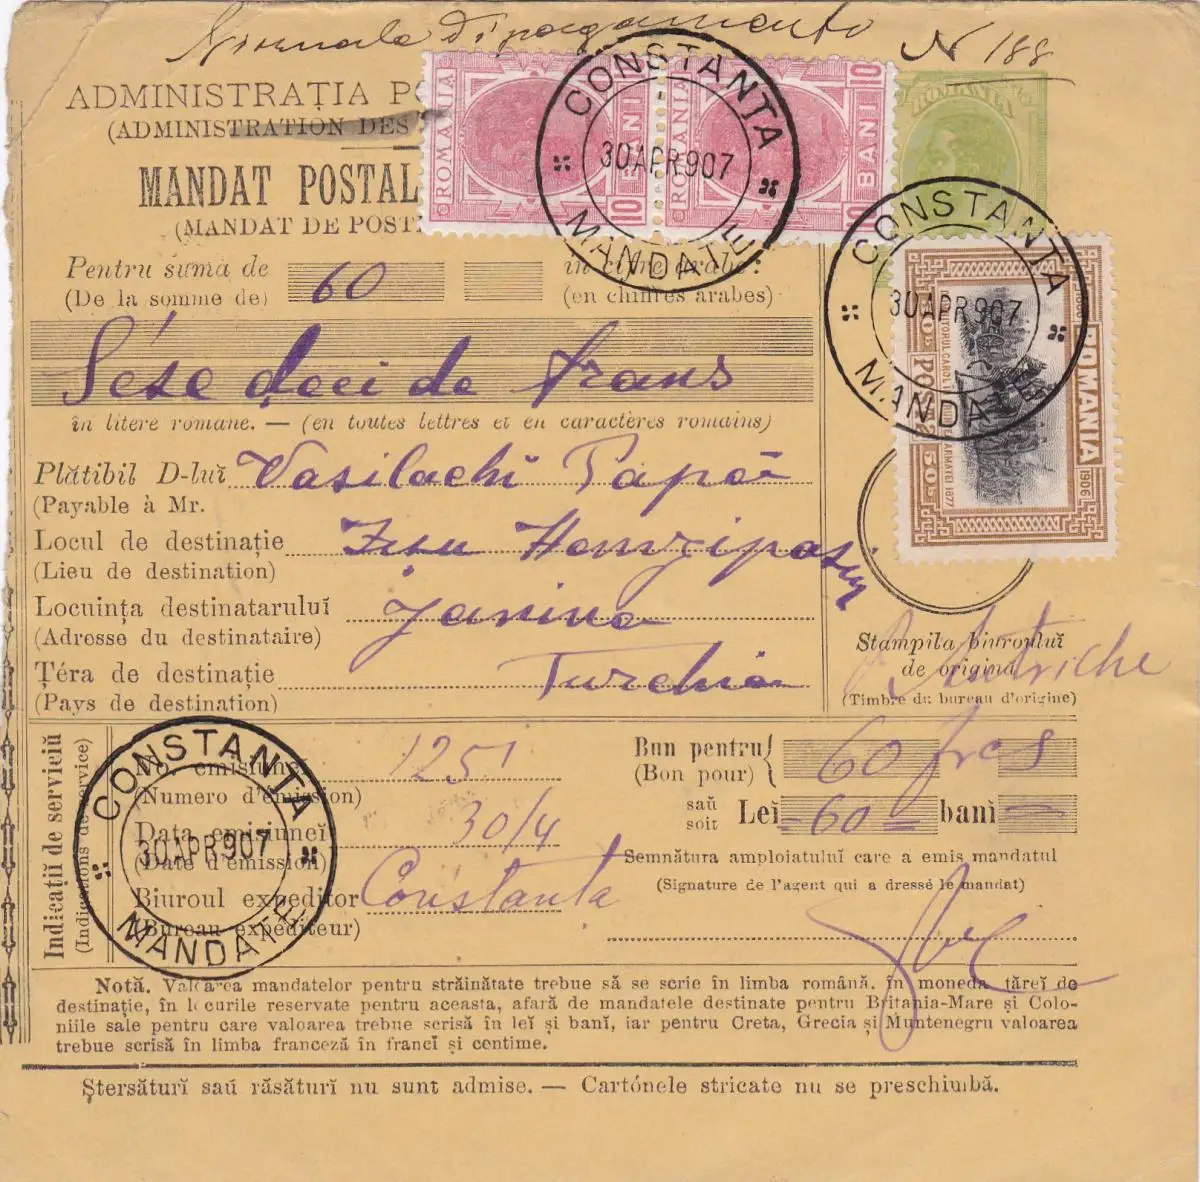 Giornale di pagamento N 188
ADMINISTRAȚIA PO
(ADMINISTRATION DES
MANDAT POSTAL
(MANDAT DE POST
ROMANIA 10 BANI
ROMANIA 10 BANI 10
ROMANIA
CONSTANTA
30APR907
MANDATE
CONSTANTA
30APR907
MANDATE
1866 ROMANIA 1906
50 B. POSTA 50 B.
Pentru suma de 60 în cifre arabe:
(De la somme de) (en chiffres arabes)
Sése deci de francs
în litere romane. — (en toutes lettres et en caractères romains)
Plătibil D-luĭ Vasilachi Papa
(Payable à Mr.
Locul de destinație
(Lieu de destination)
Locuința destinataruluĭ Janina
(Adresse du destinataire)
Țéra de destinație Turchia
(Pays de destination)
Stampila biurouluĭ
de origină
(Timbre du bureau d'origine)
Indicațiĭ de serviciŭ
(Indications de service)
No. emisiuneĭ 1251
(Numero d'émission)
Data emisiuneĭ 30/4
(Date d'émission)
Biuroul expeditor Constanta
(Bureau expéditeur)
CONSTANTA
30APR907
MANDATE
Bun pentru 60 frcs
(Bon pour)
saŭ
soit
Leĭ =60= banĭ =
Semnătura amploiatuluĭ care a emis mandatul
(Signature de l'agent qui a dressé le mandat)
Notă. Valoarea mandatelor pentru străinătate trebue să se scrie în limba română. în moneda țăreĭ de
destinație, în locurile reservate pentru aceasta, afară de mandatele destinate pentru Britania-Mare și Colo-
niile sale pentru care valoarea trebue scrisă în leĭ și banĭ, iar pentru Creta, Grecia și Muntenegru valoarea
trebue scrisă în limba franceză în francĭ și centime.
Ștersăturĭ saŭ răsăturĭ nu sunt admise. — Cartónele stricate nu se preschimbă.